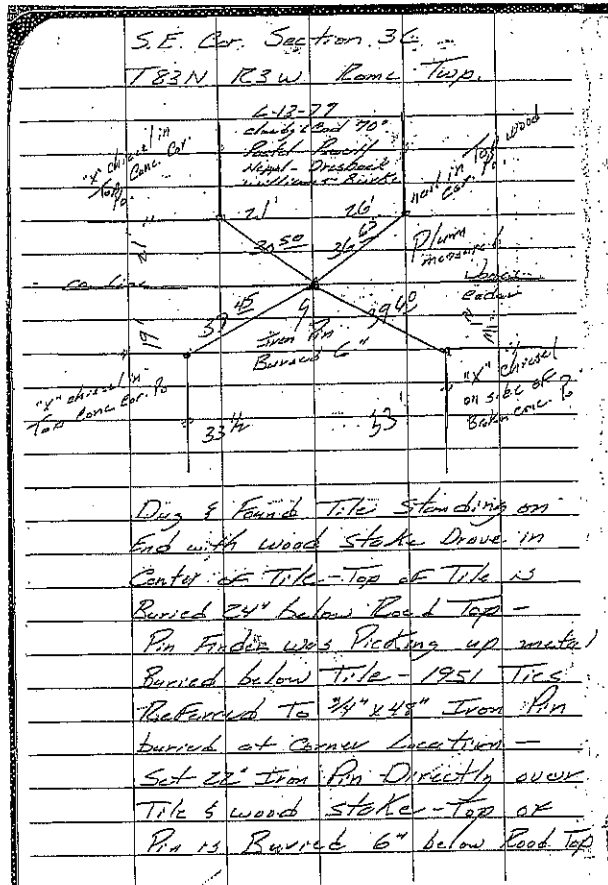 S.E. Cor. Section 36
T83N R3W Rome Twp.
6-13-77
cloudy & cod 70°
"X" chisel in
Top Conc. Cor.
Po
nail in Top wood
Cor. Po.
21' 26'
30 50 36 63
Plum
measured
21'
co line
Jones
Cedar
37 45 39 40
19'
Iron Pin
Buried 6"
"X" chisel in
Top Conc. Cor. Po
"X" chisel
on side of
Broken conc. Po
33 1/2 33'
Dug & Found Tile Standing on
End with wood stake Drove in
Center of Tile - Top of Tile is
Buried 24" below Road Top -
Pin Finder was Picking up metal
Buried below Tile - 1951 Ties
Referred To 3/4" x 48" Iron Pin
buried at Corner Location -
Set 22" Iron Pin Directly over
Tile & wood stake - Top of
Pin is Buried 6" below Road Top